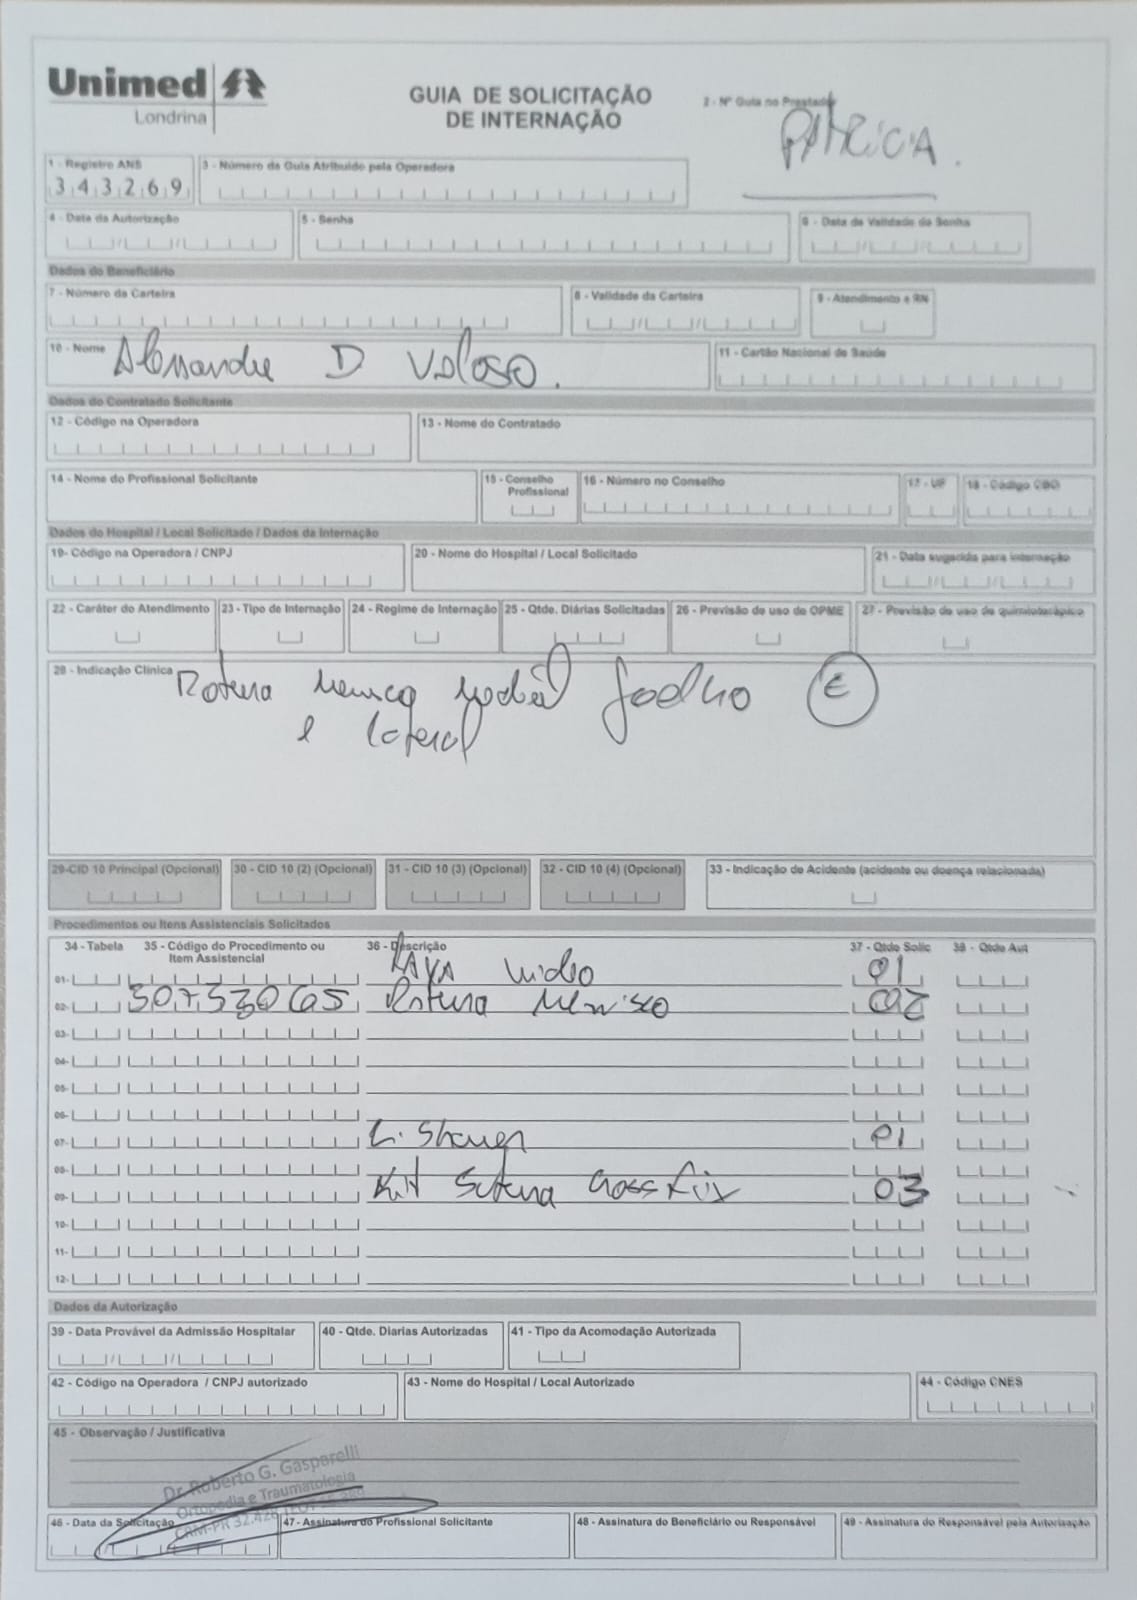 Unimed
Londrina
GUIA DE SOLICITAÇÃO
DE INTERNAÇÃO
2 - Nº Guia no Prestador
PATRICIA.
1 - Registro ANS
343269
3 - Número da Guia Atribuído pela Operadora
4 - Data da Autorização
5 - Senha
6 - Data de Validade da Senha
Dados do Beneficiário
7 - Número da Carteira
8 - Validade da Carteira
9 - Atendimento a RN
10 - Nome Alessandre D Veloso.
11 - Cartão Nacional de Saúde
Dados do Contratado Solicitante
12 - Código na Operadora
13 - Nome do Contratado
14 - Nome do Profissional Solicitante
15 - Conselho
Profissional
16 - Número no Conselho
17 - UF
18 - Código CBO
Dados do Hospital / Local Solicitado / Dados da Internação
19- Código na Operadora / CNPJ
20 - Nome do Hospital / Local Solicitado
21 - Data sugerida para internação
22 - Caráter do Atendimento
23 - Tipo de Internação
24 - Regime de Internação
25 - Qtde. Diárias Solicitadas
26 - Previsão de uso de OPME
27 - Previsão de uso de quimioterápico
28 - Indicação Clínica
Rotura menisco medial Joelho E
e lateral
29-CID 10 Principal (Opcional)
30 - CID 10 (2) (Opcional)
31 - CID 10 (3) (Opcional)
32 - CID 10 (4) (Opcional)
33 - Indicação de Acidente (acidente ou doença relacionada)
Procedimentos ou Itens Assistenciais Solicitados
34 - Tabela
35 - Código do Procedimento ou
Item Assistencial
36 - Descrição
37 - Qtde Solic
38 - Qtde Aut
01- video 01
02- 30733065 Rotura Menisco 02
03-
04-
05-
06-
07- L. Shaver 01
08-
09- Kit Sutura Cross Fix 03
10-
11-
12-
Dados da Autorização
39 - Data Provável da Admissão Hospitalar
40 - Qtde. Diarias Autorizadas
41 - Tipo da Acomodação Autorizada
42 - Código na Operadora / CNPJ autorizado
43 - Nome do Hospital / Local Autorizado
44 - Código CNES
45 - Observação / Justificativa
Dr. Roberto G. Gasparelli
Ortopedia e Traumatologia
CRM-PR 32.428
46 - Data da Solicitação
47 - Assinatura do Profissional Solicitante
48 - Assinatura do Beneficiário ou Responsável
49 - Assinatura do Responsável pela Autorização